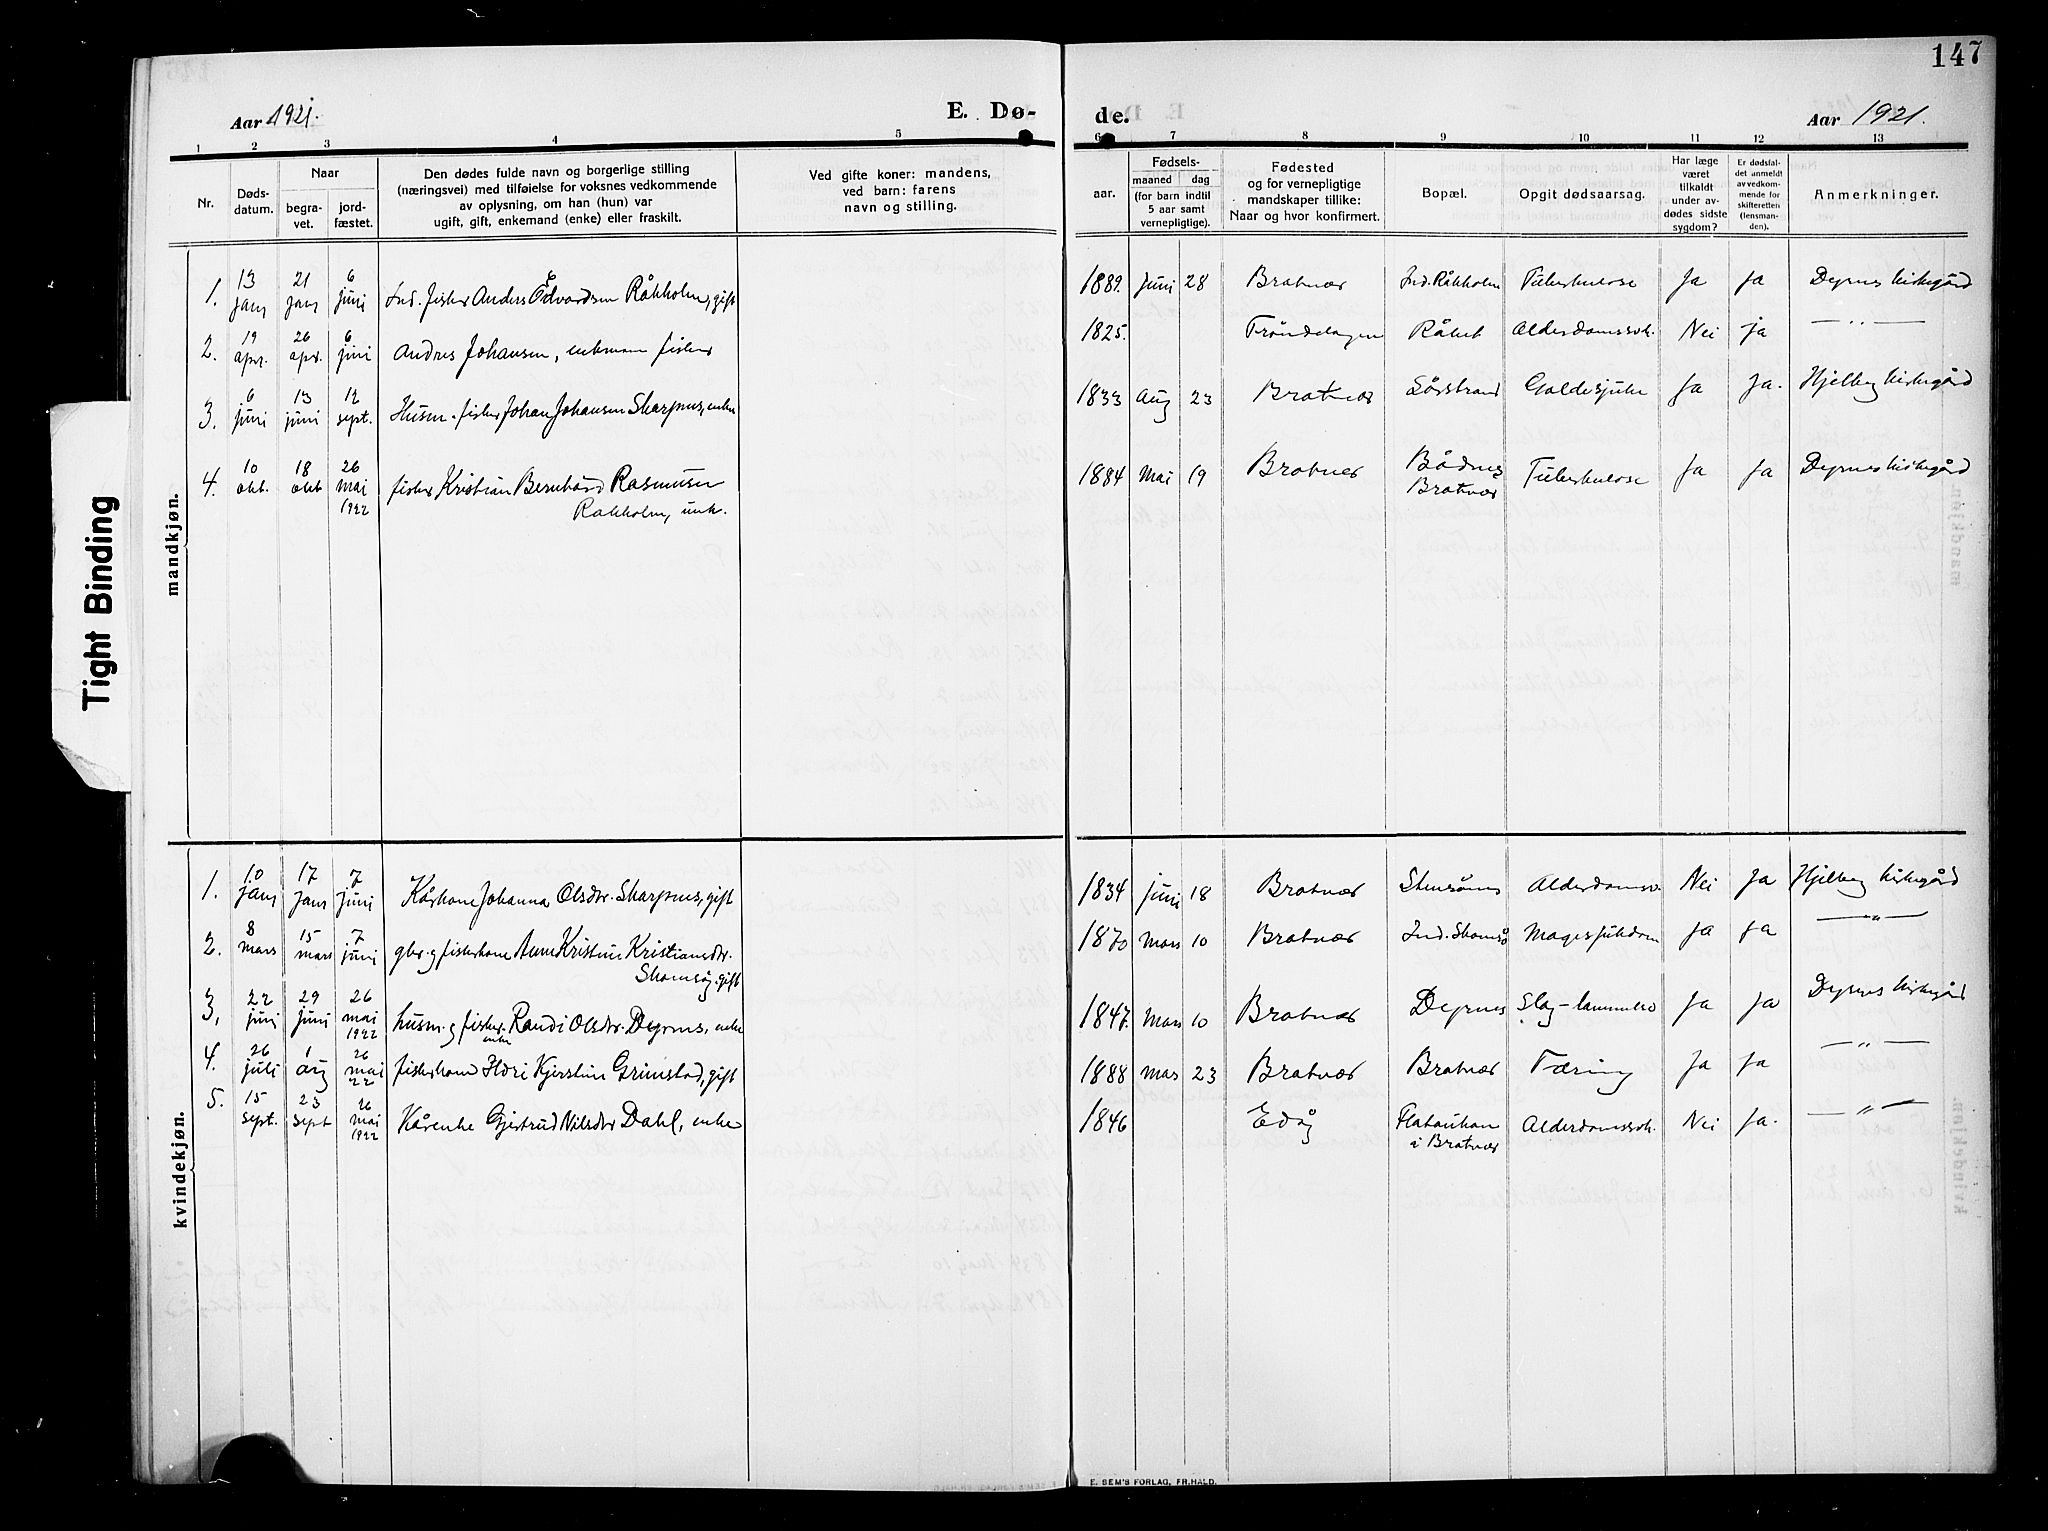 147
Aar 1921.
E. Dø-
de.
Aar 1921.
1 2 3 4 5 6 7 8 9 10 11 12 13
Nr.
Døds-
datum.
Naar
begra-
vet.
jord-
fæstet.
Den dødes fulde navn og borgerlige stilling
(næringsvei) med tilføielse for voksnes vedkommende
av oplysning, om han (hun) var
ugift, gift, enkemand (enke) eller fraskilt.
Ved gifte koner: mandens,
ved barn: farens
navn og stilling.
aar.
Fødsels-
maaned dag
(for barn indtil
5 aar samt
vernepligtige).
Fødested
og for vernepligtige
mandskaper tillike:
Naar og hvor konfirmert.
Bopæl.
Opgit dødsaarsag.
Har læge
været
tilkaldt
under av-
dødes sidste
sygdom?
Er dødsfal-
det anmeldt
av vedkom-
mende for
skifteretten
(lensman-
den).
Anmerkninger.
mandkjøn.
1. 13 jan 21 jan 6 juni Ind. fisker Anders Edvardsen Råkholm, gift 1889. Juni 28 Bratvær Ind. Råkholm Tuberkulose Ja Ja Dyrnes kirkegård
2. 19 apr. 26 apr. 6 juni Andres Johansen, enkeman fisker 1825. Trøndelagen Råket Alderdomssvk. Nei ja — " —
3. 6 juni 13 juni 12 sept. Husm. fisker Johan Johansen Skarpnes, enkem 1833 Aug 23 Bratvær Sørstrand Galdesjuke Ja Ja. Hjelbeg kirkegård
4. 10 okt. 18 okt 26 mai 1922 fisker Kristian Bernhard Rasmusen
Rakholm, unk. 1884 Mai 19 Bratvær Bådnes
Bratvær Tuberkulose Ja Ja Dyrnes kirkegård
kvindekjøn.
1. 10 jan 17 Jan 7 juni Kårkone Johanna Olsdtr. Skarpnes, gift 1834 juni 18 Bratvær Stensønes Alderdomssv. Nei Ja Hjelbeg kirkegård
2. 8 mars 15 mars 7 juni gbr. og fiskerkone Anne Kristine Kristiansdtr.
Skomsøy, gift 1870 Mars 10 Bratvær Ind. Skomsø Magesjukdom Ja Ja — " —
3, 22 juni 29 juni 26 mai 1922 husm. og fisker. enke Randi Olsdtr. Dyrnes, enke 1847. Mars 10 Bratvær Dyrnes Slag-lammelse Ja Ja Dyrnes kirkegård
4. 26 juli 1 aug 26 mai 22 fiskerkone Kjerstine Grimstad, gift 1888 Mars 23 Bratvær Bratvær Tæring Ja Ja — " —
5. 15 sept. 23 sept 26 mai 1922 Kårenke Gjertrud Nilsdtr Dahl, enke 1846 Edøy
i Bratvær Alderdomssvk. Nei Ja. — " —
E. SEM'S FORLAG, FR.HALD.
Tight Binding